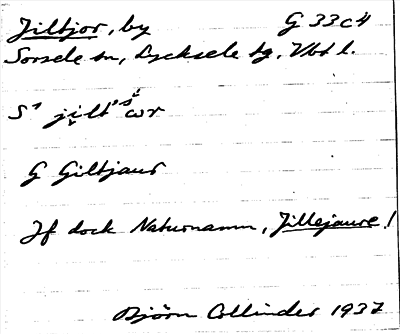 Jiltjor, by G 33c4
Sorsele sn, Lycksele tg. Vbt l.
G Giltjaur
Jf dock Naturnamn, Jillejaure!
Björn Collinder 1937